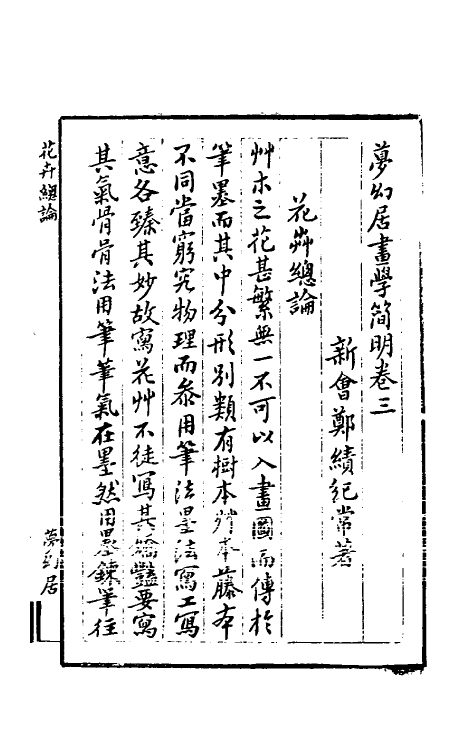 夢幻居畫學簡明卷三
新會鄭績紀常著
花卉總論
艸木之花甚繁無一不可以入畫圖而傳於
筆墨而其中分形別類有樹本艸本藤本
不同當窮究物理而叅用筆法墨法寫工寫
意各臻其妙故寫花艸不徒寫其嬌豔要寫
其氣骨骨法用筆筆氣在墨然用墨鍊筆往
花卉總論
夢幻居